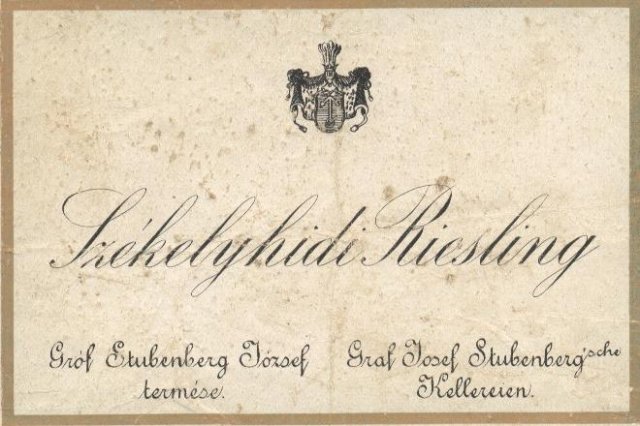 Székelyhidi Riesling
Gróf Stubenberg József
termése.
Graf Josef Stubenberg'sche
Kellereien.